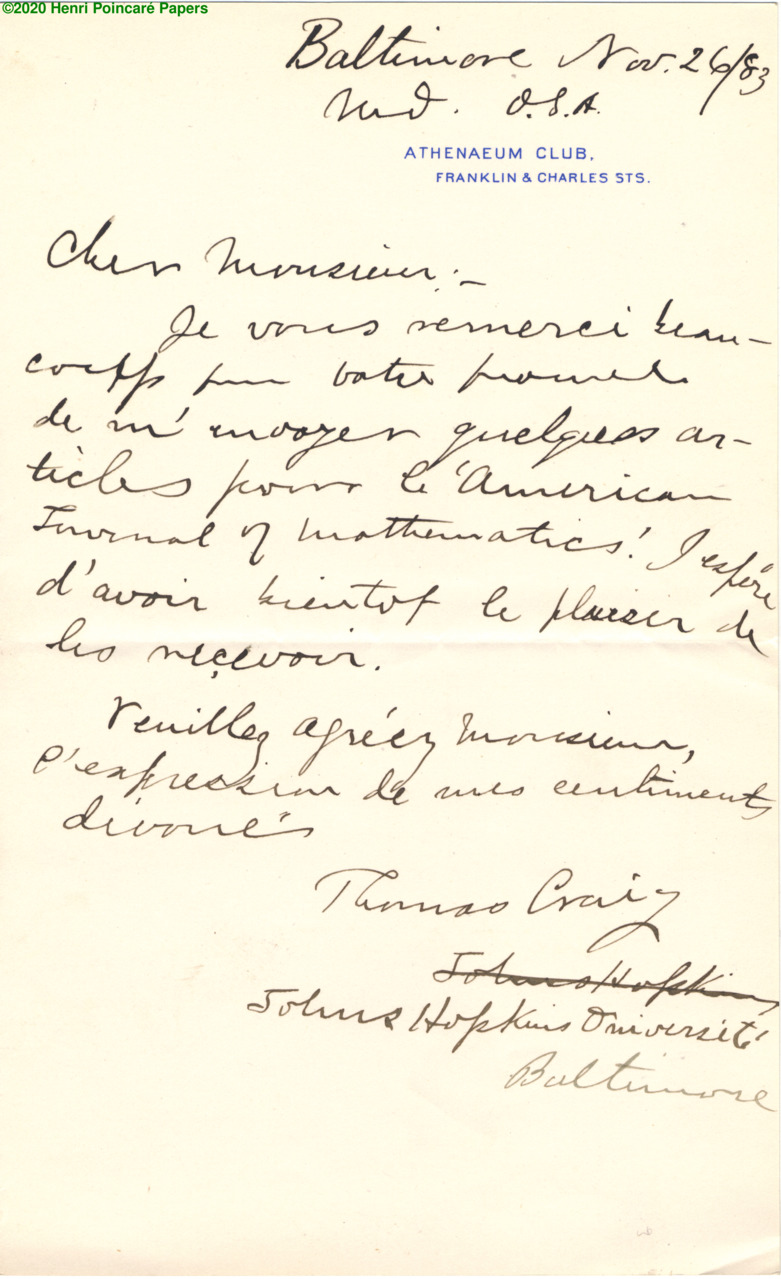 ©2020 Henri Poincaré Papers
Baltimore Nov. 26/83
Md. U.S.A.
ATHENAEUM CLUB,
FRANKLIN & CHARLES STS.
Cher Monsieur:–
Je vous remerci beau-
coupp pour votre promesse
de m'envoyer quelques ar-
ticles pour le "American
Journal of Mathematics". J'espére
d'avoir bientot le plaiser de
les reçevoir.
Veuillez agréez Monsieur,
l'expression de mes sentiments
dévoués
Thomas Craig
Johns Hopkins
Johns Hopkins Université
Baltimore